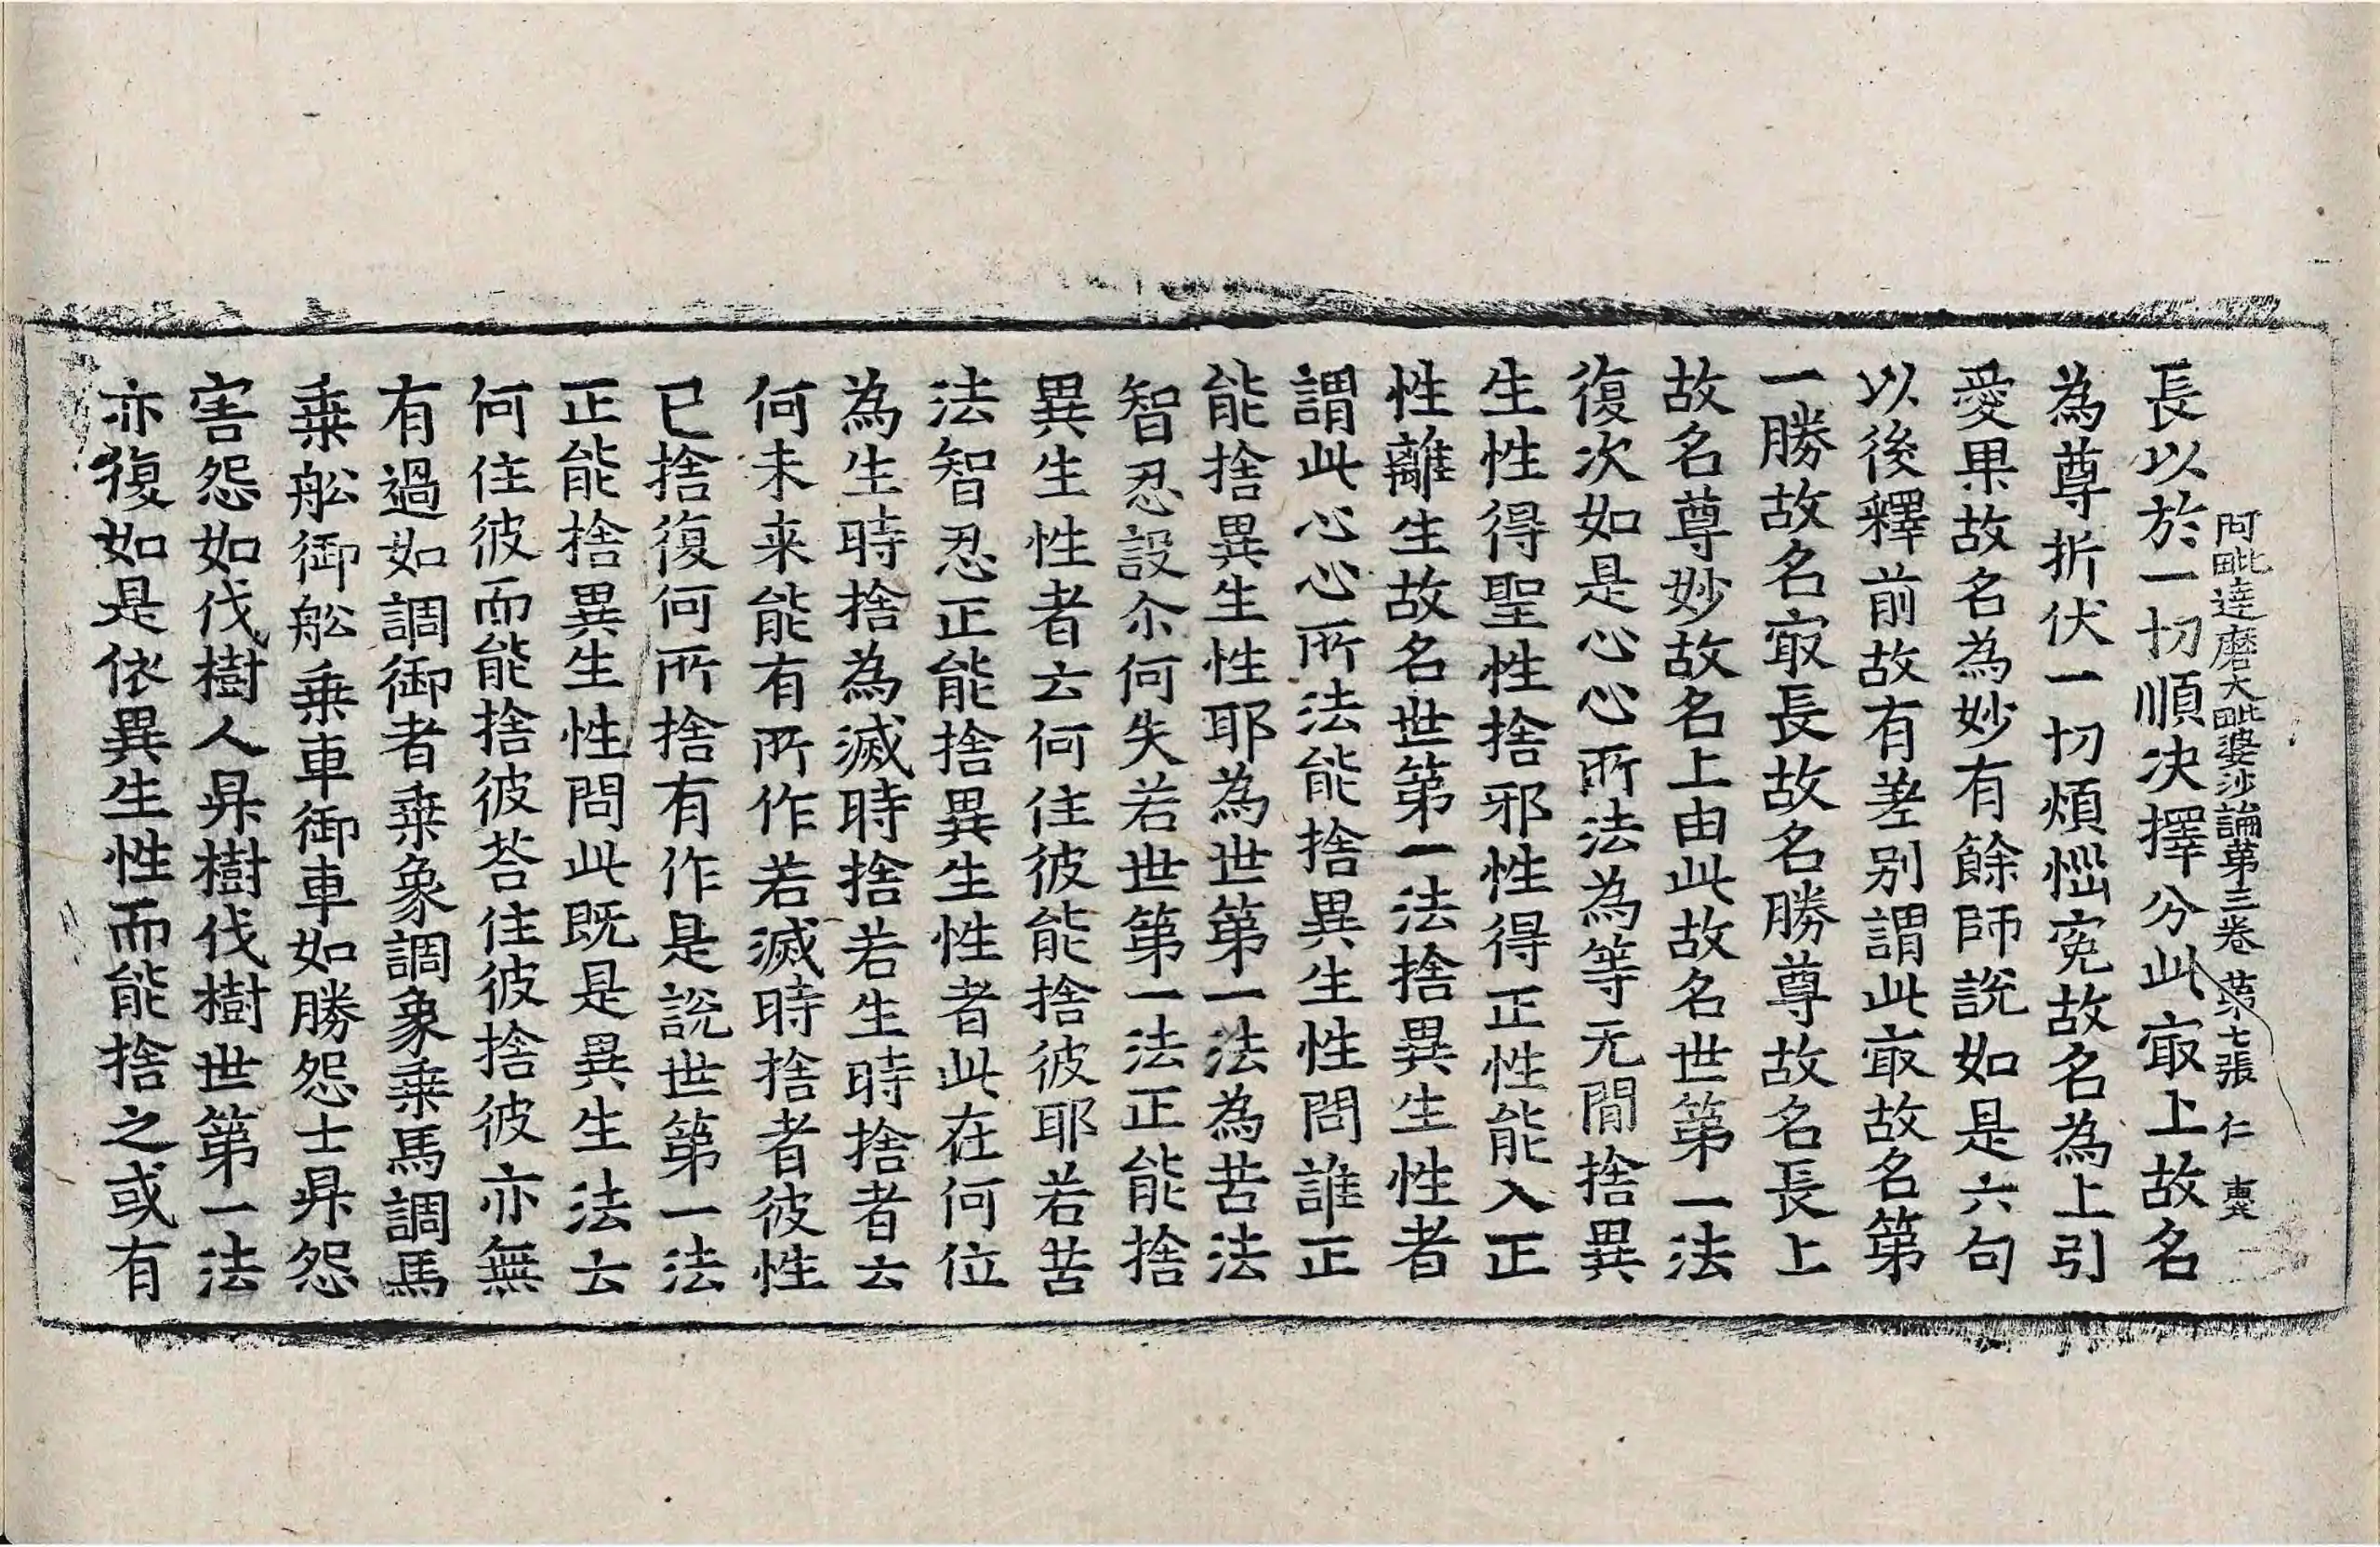 阿毗達磨大毗婆沙論第三卷 第七張 仁
長以於一切順决擇分此㝡上故名
為尊折伏一切煩惱寃故名為上引
愛果故名為妙有餘師說如是六句
以後釋前故有差别謂此㝡故名第
一勝故名㝡長故名勝尊故名長上
故名尊妙故名上由此故名世第一法
復次如是心心所法為等无間捨異
生性得聖性捨邪性得正性能入正
性離生故名世第一法捨異生性者
謂此心心所法能捨異生性問誰正
能捨異生性耶為世第一法為苦法
智忍設尒何失若世第一法正能捨
異生性者云何住彼能捨彼耶若苦
法智忍正能捨異生性者此在何位
為生時捨為滅時捨若生時捨者云
何未来能有所作若滅時捨者彼性
已捨復何所捨有作是說世第一法
正能捨異生性問此既是異生法云
何住彼而能捨彼荅住彼捨彼亦無
有過如調御者乗象調象乗馬調馬
乗舩御舩乗車御車如勝怨士昇怨
害怨如伐樹人昇樹伐樹世第一法
亦復如是依異生性而能捨之或有